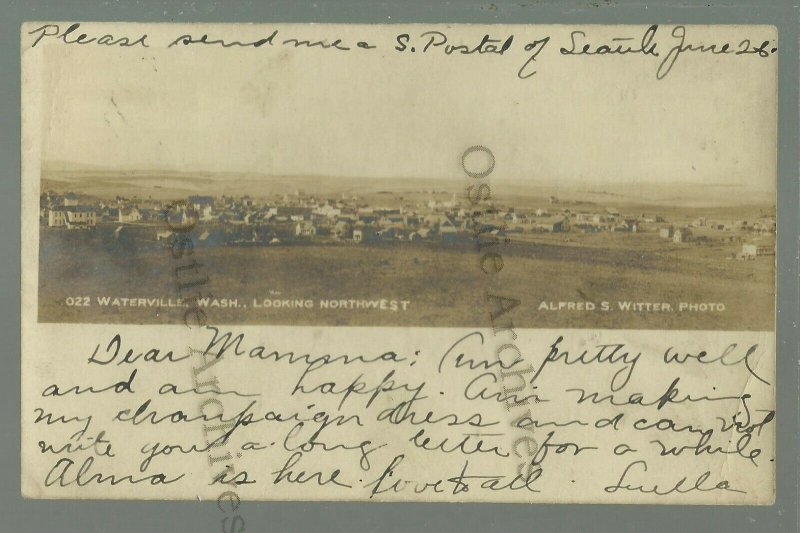 Please send me a S. Postal of Seattle June 26.
022 WATERVILLE, WASH., LOOKING NORTHWEST
ALFRED S. WITTER, PHOTO
Dear Mamma: Am pretty well
and am happy. Am making
my champaign dress and can not
write you a long letter for a while.
Alma is here. Love to all. Luella
Ostlie Archives
Ostlie Archives